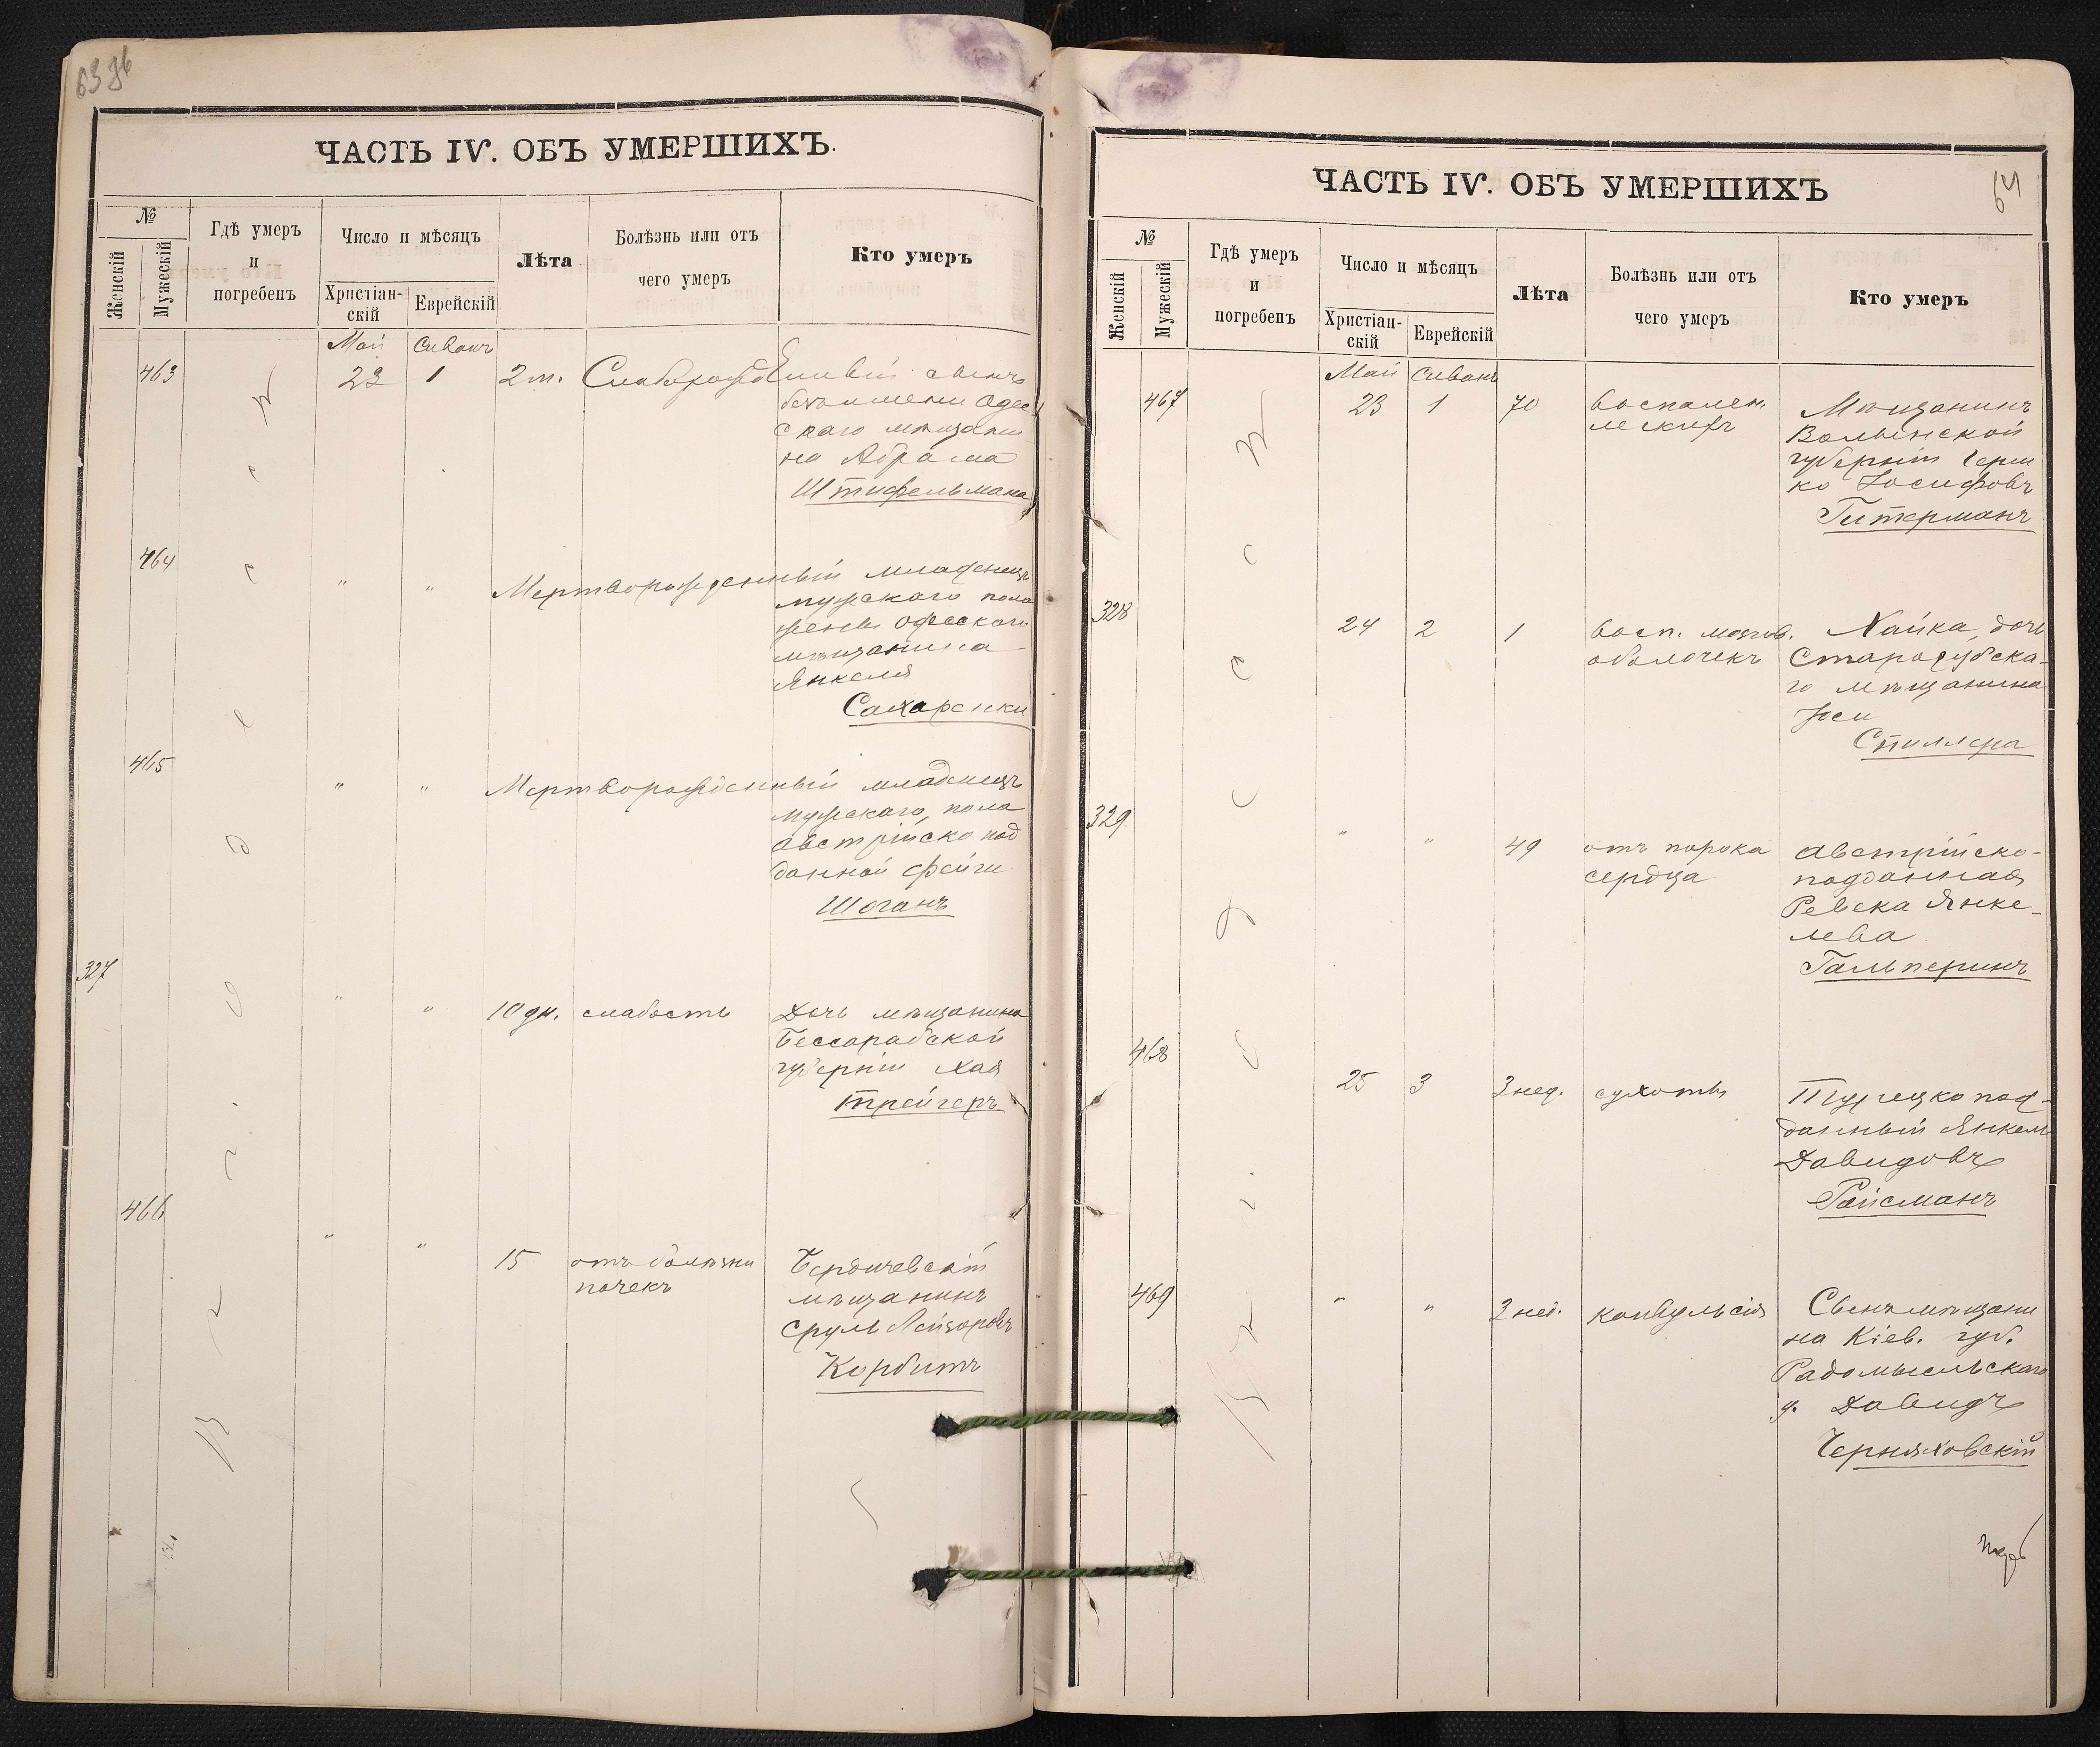 ЧАСТЬ IV. ОБЪ УМЕРШИХЪ.
№
Женскій
Мужескій
Гдѣ умеръ
и
погребенъ
Число и мѣсяцъ
Христіан-
скій
Еврейскій
Лѣта
Болѣзнь или отъ
чего умеръ
Кто умеръ
Май Сиванъ
463 23 1 2 м.
безъ имени Одес
скаго мѣщани
на Абрама
Штифельмана
464 " " Мертворожденный младенецъ
мужского пола
жены Одесскаго
мѣщанина
Янкеля
Сахаренки
465 " " Мертворожденный младенецъ
мужскаго пола
австрійско под
данной Фейги
Шоганъ
327 " " 10 дн. слабость Дочь мѣщанина
Бессарабской
губерніи Хая
Трейгеръ
466 " " 15 отъ болѣзни Бердичевскій
почекъ мѣщанинъ
Сруль Лейзоровъ
Корбитъ
В ъ О д е с с ѣ
ЧАСТЬ IV. ОБЪ УМЕРШИХЪ
64
№
Женскій
Мужескій
Гдѣ умеръ
и
погребенъ
Число и мѣсяцъ
Христіан-
скій
Еврейскій
Лѣта
Болѣзнь или отъ
чего умеръ
Кто умеръ
Май Сиванъ
467 23 1 70 воспален. Мѣщанинъ
легкихъ Волынской
губерніи Герш
ко Іосифовъ
Гитерманъ
328 24 2 1 восп. мозгов. Хайка, дочь
оболочекъ Стародубска-
го мѣщанина
Іоси
Спиллера
329 " " 49 отъ порока австрійско-
сердца подданная
Ревека Янке-
лева
Гальперинъ
468 25 3 3 нед. сухоты Турецко под-
данный Янкель
Давидовъ
Ройсманъ
469 " " 3 нед. конвульсія Сынъ мѣщани
на Кіев. губ.
Радомысльскаго
у. Давидъ
Черняховскій
В ъ О д е с с ѣ